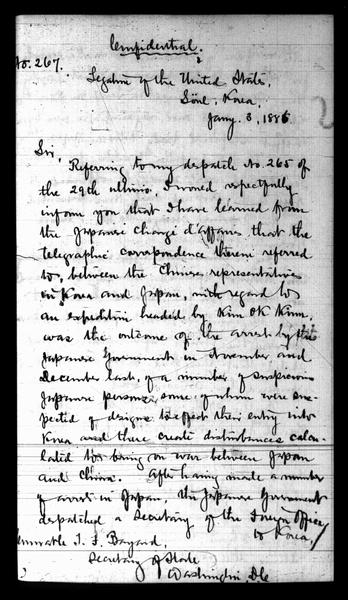 Confidential.
No. 267.
Legation of the United States,
Söul, Korea,
Jany. 3, 1886
Sir,
Referring to my despatch No. 265 of
the 29th ultimo, I would respectfully
inform you that I have learned from
the Japanese Chargé d'affaires that the
telegraphic correspondence therein referred
to, between the Chinese representatives
in Korea and Japan, with regard to
an expedition headed by Kim OK Kiun,
was the outcome of the arrest by the
Japanese Government in November and
December last, of a number of suspicious
Japanese persons, some of whom were sus-
pected of designs to effect their entry into
Korea and there create disturbances calcu-
lated to bring on war between Japan
and China. After having made a number
of arrests in Japan, the Japanese Government
despatched a Secretary of the Foreign Office
to Korea,
Honorable T. F. Bayard,
Secretary of State
Washington, D.C.